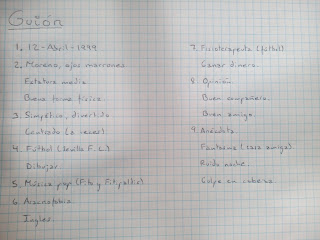 Guión
1. 12-Abril-1999
2. Moreno, ojos marrones
Estatura media
Buena forma física
3. Simpático, divertido
Centrado (a veces)
4. Fútbol (Sevilla F.C.)
Dibujar
5. Música pop (Fito y Fitipaldis)
6. Aracnofobia
Inglés
7. Fisioterapeuta (fútbol)
Ganar dinero
8. Opinión
Buen compañero
Buen amigo
9. Anécdota
Fantasma (casa amigo)
Ruido noche
Golpe en cabeza